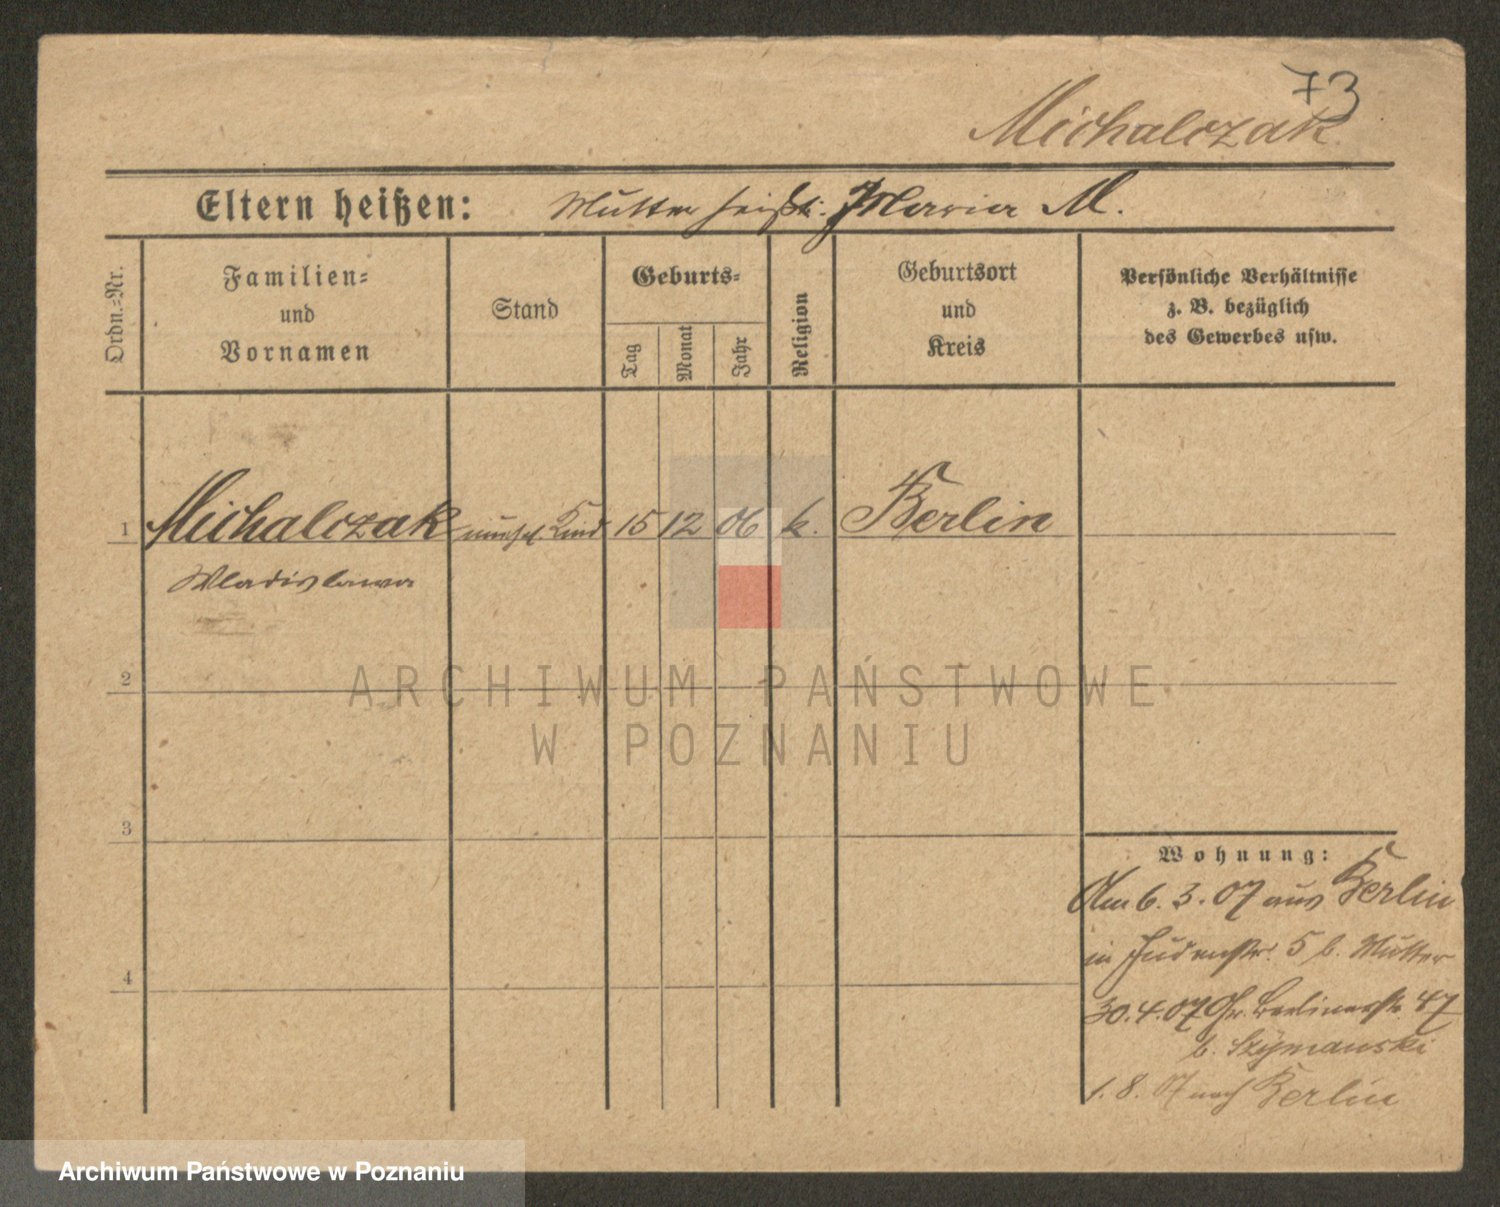 73
Michalczak
Eltern heißen: Mutter heißt: Maria M.
Ordn.-Nr.
Familien-
und
Vornamen
Stand
Geburts-
Tag
Monat
Jahr
Religion
Geburtsort
und
Kreis
Persönliche Verhältnisse
z. B. bezüglich
des Gewerbes usw.
1 Michalczak unehel. Kind 15 12 06 k. Berlin
Wladislawa
2
ARCHIWUM PAŃSTWOWE
W POZNANIU
3
Wohnung:
Am 6. 3. 07 aus Berlin
in Judenstr. 5 b. Mutter
4
30. 4. 07 Gr. Berlinerstr. 47
b. Szymanski
1. 8. 07 nach Berlin
Archiwum Państwowe w Poznaniu